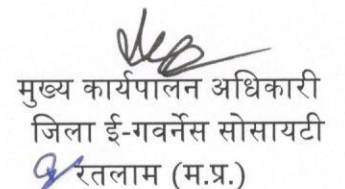 मुख्य कार्यपालन अधिकारी
जिला ई-गवर्नेस सोसायटी
रतलाम (म.प्र.)